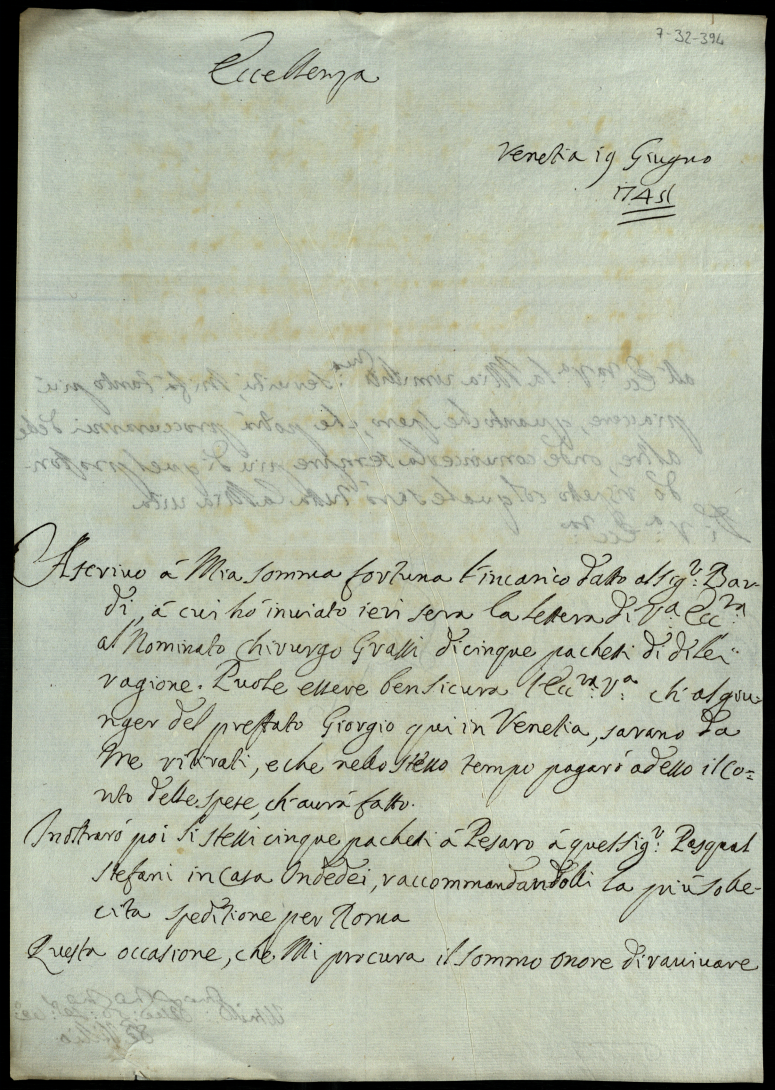 7-32-394
Eccellenza
Venetia 19 Giugno
Ascrivo á Mia somma fortuna l'incarico datto al Sig.r Bar-
di, á cui hó inviato ieri sera la lettera di V.a Ecc.za
al Nominato Chirurgo Grassi di cinque pacheti di di lei
ragione. Puole essere ben sicura l'Ecc.za V.a ch'al giu-
nger del prestato Giorgio qui in Venetia, sarano da
Me ritirati, e che nello stesso tempo pagaró adesso il Co=
nto delle spese, ch'avrá fatto.
Inoltraró poi li stessi cinque pacheti á Pesaro á quel Sig.r Pasqual
Stefani in Casa Ondedei, raccommandandolli la piú solle-
cita speditione per Roma
Questa occasione, che Mi procura il sommo onore di ravvivare